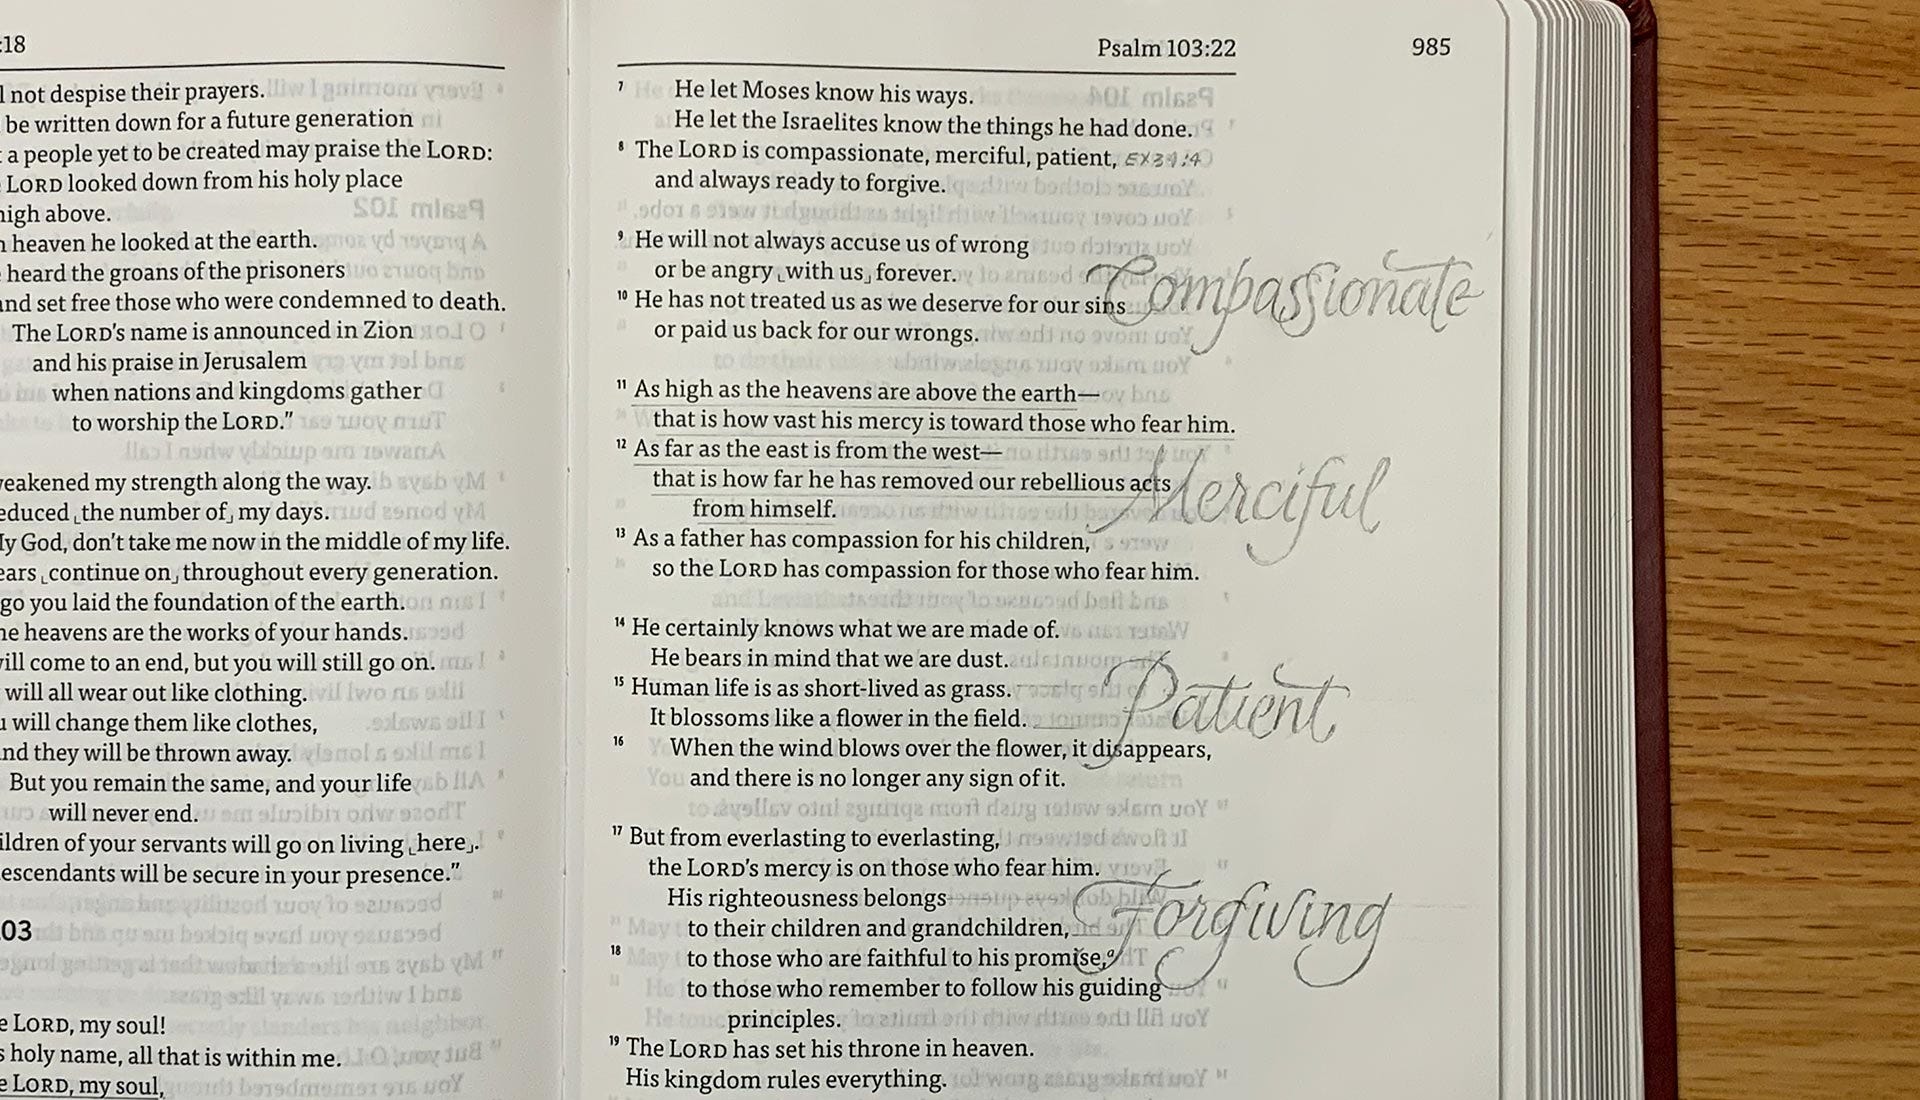 :18
l not despise their prayers.
be written down for a future generation
a people yet to be created may praise the LORD:
LORD looked down from his holy place
high above.
heaven he looked at the earth.
heard the groans of the prisoners
and set free those who were condemned to death.
The LORD's name is announced in Zion
and his praise in Jerusalem
when nations and kingdoms gather
to worship the LORD."
weakened my strength along the way.
educed ⌞the number of⌟ my days.
My God, don't take me now in the middle of my life.
ears ⌞continue on⌟ throughout every generation.
go you laid the foundation of the earth.
he heavens are the works of your hands.
will come to an end, but you will still go on.
will all wear out like clothing.
u will change them like clothes,
and they will be thrown away.
But you remain the same, and your life
will never end.
ildren of your servants will go on living ⌞here⌟.
escendants will be secure in your presence."
03
e LORD, my soul!
s holy name, all that is within me.
e LORD, my soul,
Psalm 103:22 985
7 He let Moses know his ways.
He let the Israelites know the things he had done.
8 The LORD is compassionate, merciful, patient, EX34:4
and always ready to forgive.
9 He will not always accuse us of wrong
or be angry ⌞with us⌟ forever.
Compassionate
10 He has not treated us as we deserve for our sins
or paid us back for our wrongs.
11 As high as the heavens are above the earth—
that is how vast his mercy is toward those who fear him.
12 As far as the east is from the west—
that is how far he has removed our rebellious acts
Merciful
from himself.
13 As a father has compassion for his children,
so the LORD has compassion for those who fear him.
14 He certainly knows what we are made of.
He bears in mind that we are dust.
15 Human life is as short-lived as grass.
Patient
It blossoms like a flower in the field.
16 When the wind blows over the flower, it disappears,
and there is no longer any sign of it.
17 But from everlasting to everlasting,
the LORD's mercy is on those who fear him.
His righteousness belongs
Forgiving
to their children and grandchildren,
18 to those who are faithful to his promise,
to those who remember to follow his guiding
principles.
19 The LORD has set his throne in heaven.
His kingdom rules everything.